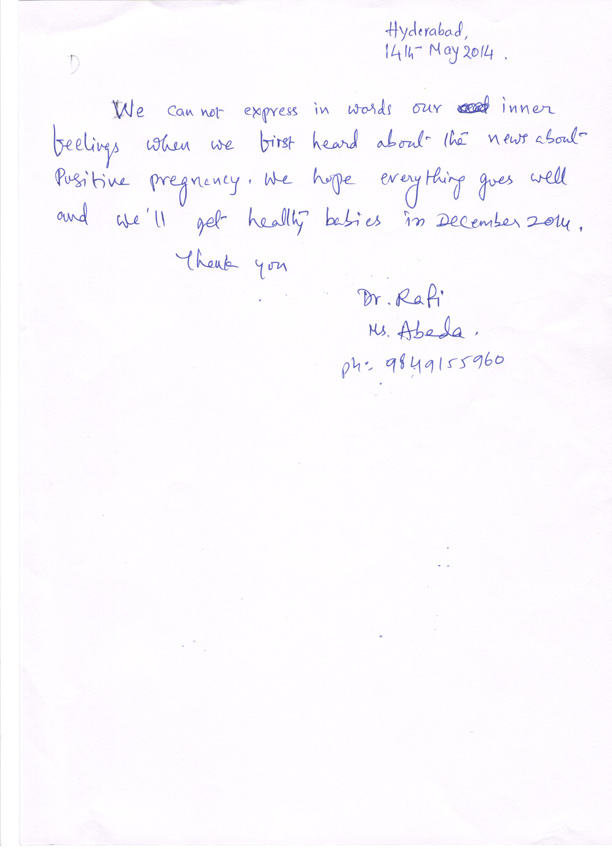 Hyderabad,
14th May 2014.
D
We can not express in words our inner
feelings when we first heard about the news about
Positive pregnancy. We hope everything goes well
and we'll get healthy babies in December 2014.
Thank you
Dr. Rafi
Ms. Abeda.
ph:- 9849155960